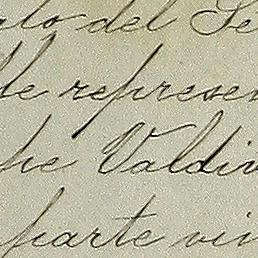 ato del Se
de represen
pe Valdiv
parte vin